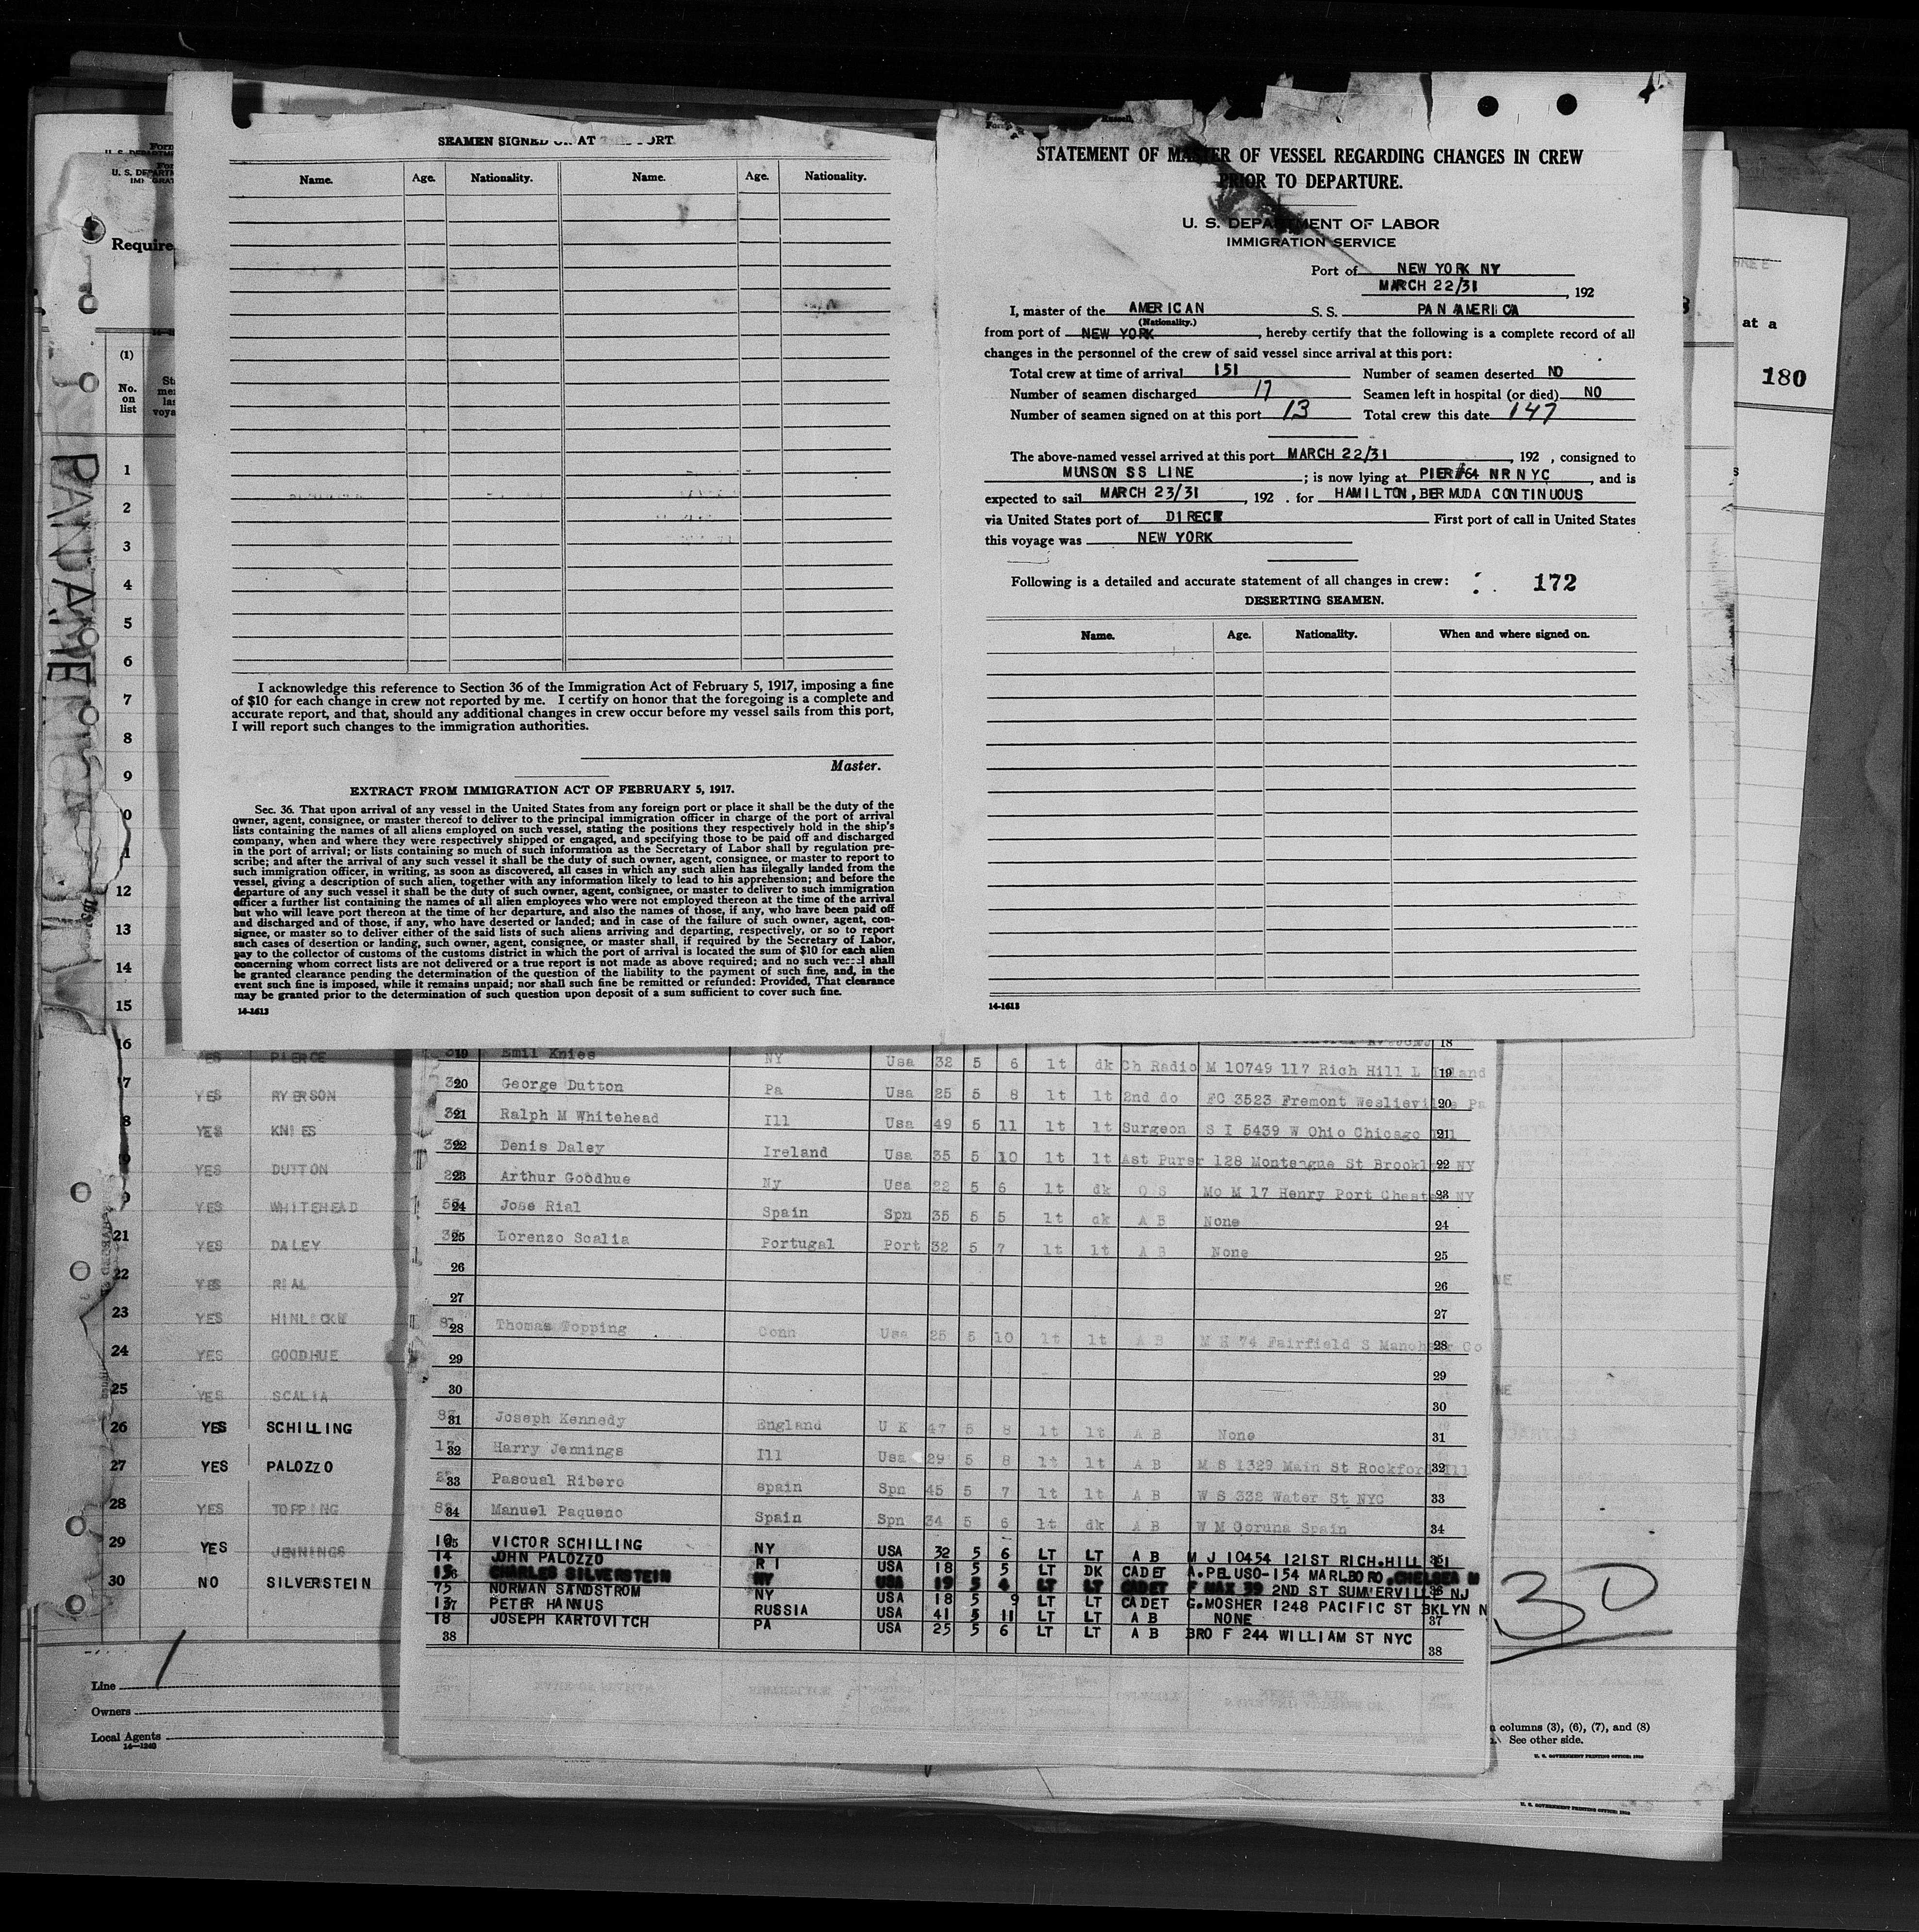 SEAMEN SIGNED AT ORT
Name. Age. Nationality. Name. Age. Nationality.
I acknowledge this reference to Section 36 of the Immigration Act of February 5, 1917, imposing a fine
of $10 for each change in crew not reported by me. I certify on honor that the foregoing is a complete and
accurate report, and that, should any additional changes in crew occur before my vessel sails from this port,
I will report such changes to the immigration authorities.
Master.
EXTRACT FROM IMMIGRATION ACT OF FEBRUARY 5, 1917.
Sec. 36. That upon arrival of any vessel in the United States from any foreign port or place it shall be the duty of the
owner, agent, consignee, or master thereof to deliver to the principal immigration officer in charge of the port of arrival
lists containing the names of all aliens employed on such vessel, stating the positions they respectively hold in the ship's
company, when and where they were respectively shipped or engaged, and specifying those to be paid off and discharged
in the port of arrival; or lists containing so much of such information as the Secretary of Labor shall by regulation pre-
scribe; and after the arrival of any such vessel it shall be the duty of such owner, agent, consignee, or master to report to
such immigration officer, in writing, as soon as discovered, all cases in which any such alien has illegally landed from the
vessel, giving a description of such alien, together with any information likely to lead to his apprehension; and before the
departure of any such vessel it shall be the duty of such owner, agent, consignee, or master to deliver to such immigration
officer a further list containing the names of all alien employees who were not employed thereon at the time of the arrival
but who will leave port thereon at the time of her departure, and also the names of those, if any, who have been paid off
and discharged and of those, if any, who have deserted or landed; and in case of the failure of such owner, agent, con-
signee, or master so to deliver either of the said lists of such aliens arriving and departing, respectively, or so to report
such cases of desertion or landing, such owner, agent, consignee, or master shall, if required by the Secretary of Labor,
pay to the collector of customs of the customs district in which the port of arrival is located the sum of $10 for each alien
concerning whom correct lists are not delivered or a true report is not made as above required; and no such vessel shall
be granted clearance pending the determination of the question of the liability to the payment of such fine, and, in the
event such fine is imposed, while it remains unpaid; nor shall such fine be remitted or refunded: Provided, That clearance
may be granted prior to the determination of such question upon deposit of a sum sufficient to cover such fine.
14-1613
STATEMENT OF MASTER OF VESSEL REGARDING CHANGES IN CREW
PRIOR TO DEPARTURE.
U. S. DEPARTMENT OF LABOR
IMMIGRATION SERVICE
Port of NEW YORK NY
MARCH 22/31, 192
I, master of the AMERICAN S. S. PAN AMERICA
(Nationality.)
from port of NEW YORK, hereby certify that the following is a complete record of all
changes in the personnel of the crew of said vessel since arrival at this port:
Total crew at time of arrival 151 Number of seamen deserted NO
Number of seamen discharged 17 Seamen left in hospital (or died) NO
Number of seamen signed on at this port 13 Total crew this date 147
The above-named vessel arrived at this port MARCH 22/31, 192 , consigned to
MUNSON SS LINE; is now lying at PIER#64 NR NYC, and is
expected to sail MARCH 23/31, 192 . for HAMILTON, BERMUDA CONTINUOUS
via United States port of DIRECT First port of call in United States
this voyage was NEW YORK
Following is a detailed and accurate statement of all changes in crew: 172
DESERTING SEAMEN.
Name. Age. Nationality. When and where signed on.
14-1613
at a
180
Form
U. S. DEPARTM
IMMIGRAT
Require
(1)
No.
on
list
1
2
3
4
5
6
7
8
9
12
13
14
15
16 YES PIERCE
7 YES RYERSON
8 YES KNIES
YES DUTTON
YES WHITEHEAD
21 YES DALEY
22 YES RIAL
23 YES
24 YES GOODHUE
25 YES SCALIA
26 YES SCHILLING
27 YES PALOZZO
28 YES TOPPING
29 YES JENNINGS
30 NO SILVERSTEIN
Line
Owners
Local Agents
14-1240
18
19 Emil Knies NY Usa 32 5 6 lt dk Ch Radio M 10749 117 Rich Hill L Island 19
20 George Dutton Pa Usa 25 5 8 lt lt 2nd do FC 3523 Fremont Weslieville Pa 20
21 Ralph M Whitehead Ill Usa 49 5 11 lt lt Surgeon S I 5439 W Ohio Chicago Ill 21
22 Denis Daley Ireland Usa 35 5 10 lt lt Ast Purser 128 Monteague St Brookl NY 22
23 Arthur Goodhue Ny Usa 22 5 6 lt dk O S Mo M 17 Henry Port Chester NY 23
24 Jose Rial Spain Spn 35 5 5 lt dk A B None 24
25 Lorenzo Scalia Portugal Port 32 5 7 lt lt A B None 25
26 26
27 27
28 Thomas Topping Conn Usa 25 5 10 lt lt A B M H 74 Fairfield S Manch Co 28
29 29
30 30
31 Joseph Kennedy England U K 47 5 8 lt lt A B None 31
32 Harry Jennings Ill Usa 29 5 8 lt lt A B M S 1329 Main St Rockford Ill 32
33 Pascual Ribero spain Spn 45 5 7 lt lt A B W S 332 Water St NYC 33
34 Manuel Paqueno Spain Spn 34 5 6 lt dk A B W M Coruna Spain 34
35 VICTOR SCHILLING NY USA 32 5 6 LT LT A B M J 10454 121ST RICH.HILL LI
14 JOHN PALOZZO R I USA 18 5 5 LT DK CADET A.PELUSO-154 MARLBORO, CHELSEA M
CHARLES SILVERSTEIN NY USA 19 5 4 LT LT CADET F MAX 39 2ND ST SUMMERVILLE NJ
75 NORMAN SANDSTROM NY USA 18 5 9 LT LT CADET G.MOSHER 1248 PACIFIC ST BKLYN N
37 PETER HANNUS RUSSIA USA 41 5 11 LT LT A B NONE 37
18 JOSEPH KARTOVITCH PA USA 25 5 6 LT LT A B BRO F 244 WILLIAM ST NYC
38 38
30
columns (3), (6), (7), and (8)
See other side.
U. S. GOVERNMENT PRINTING OFFICE